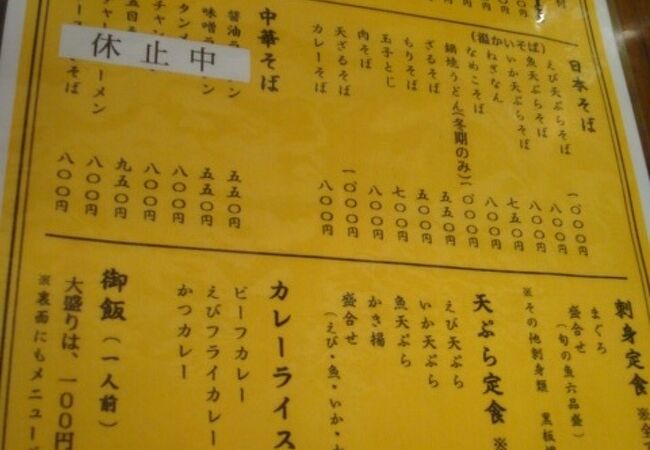 日本そば
えび天ぷらそば 一、〇〇〇円
魚天ぷらそば 八〇〇円
いか天ぷらそば 八〇〇円
七五〇円
なめこそば 八〇〇円
鍋焼うどん(冬期のみ) 一、〇〇〇円
ざるそば 五五〇円
もりそば 五〇〇円
玉子とじ 七〇〇円
肉そば 八〇〇円
天ざるそば 一、〇〇〇円
カレーそば 八〇〇円
中華そば
休止中
醤油ラ ン 五五〇円
味噌ラ ン 五五〇円
タンメ 八〇〇円
チャン 八〇〇円
五目 九五〇円
チャー ーメン 八〇〇円
ース そば 八〇〇円
刺身定食 ※
まぐろ
盛合せ
(旬の魚六品盛)
※その他刺身類 黒板
天ぷら定食 ※
えび天ぷら
いか天ぷら
魚天ぷら
かき揚
盛合せ
(えび・魚・いか・
カレーライス
ビーフカレー
えびフライカレー
かつカレー
御飯(一人前)
大盛りは、一〇〇円
※裏面にもメニュー